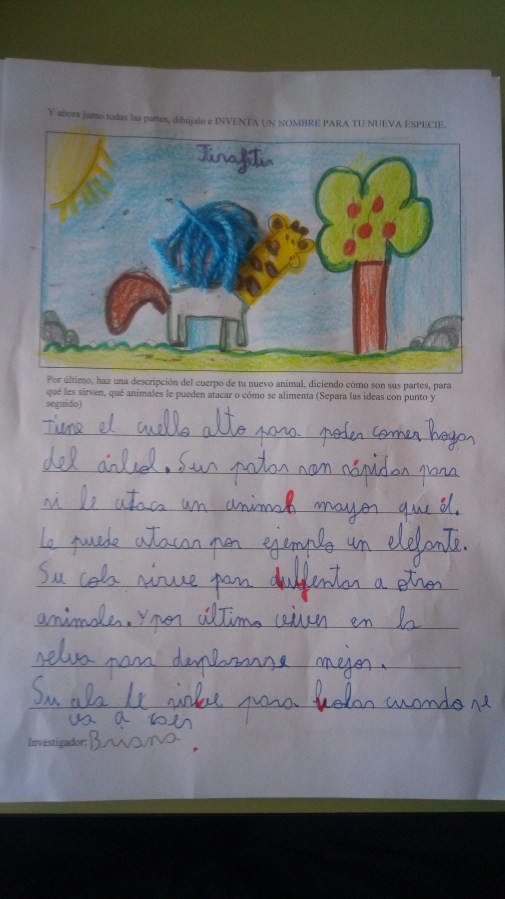 Y ahora junto todas las partes, dibújalo e INVENTA UN NOMBRE PARA TU NUEVA ESPECIE.
Jirafitin
Por último, haz una descripción del cuerpo de tu nuevo animal, diciendo cómo son sus partes, para
qué les sirven, qué animales le pueden atacar o cómo se alimenta (Separa las ideas con punto y
seguido)
Tiene el cuello alto para poder comer hogas
del árbol. Sus patas son rápidas para
si le ataca un animal mayor que él.
le puede atacar por ejemplo un elefante.
Su cola sirve para a otros
animales. Y por último vives en la
selva para desplazarse mejor.
Su ala le sirve para volar cuando se
va a caer
Investigador: Briana.